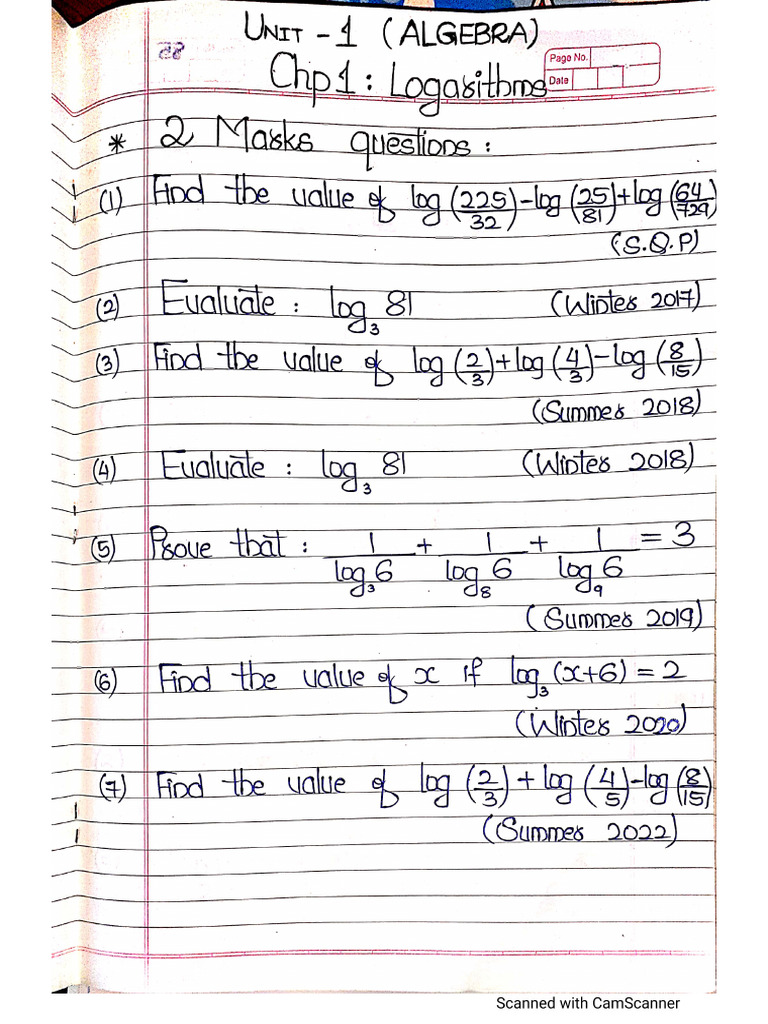 UNIT - 1 (ALGEBRA)
Chp 1 : Logarithms
Page No.
Date
* 2 Marks questions :
(1) Find the value of log(225/32) - log(25/81) + log(64/729)
(S.Q.P)
(2) Evaluate : log₃ 81 (Winter 2017)
(3) Find the value of log(2/3) + log(4/3) - log(8/15)
(Summer 2018)
(4) Evaluate : log₃ 81 (Winter 2018)
(5) Prove that : 1/log₃6 + 1/log₈6 + 1/log₉6 = 3
(Summer 2019)
(6) Find the value of x if log₃(x+6) = 2
(Winter 2020)
(7) Find the value of log(2/3) + log(4/5) - log(8/15)
(Summer 2022)
Scanned with CamScanner